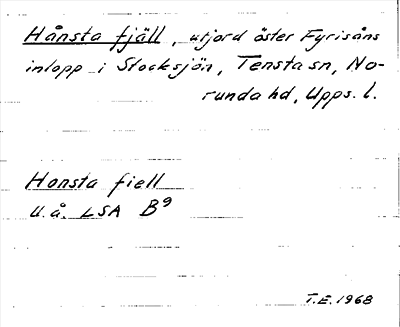 Hånsta fjäll, utjord öster Fyrisåns
inlopp i Stocksjön, Tensta sn, No-
runda hd, Upps. l.
Honsta fiell
U.å. LSA B⁹
T.E. 1968